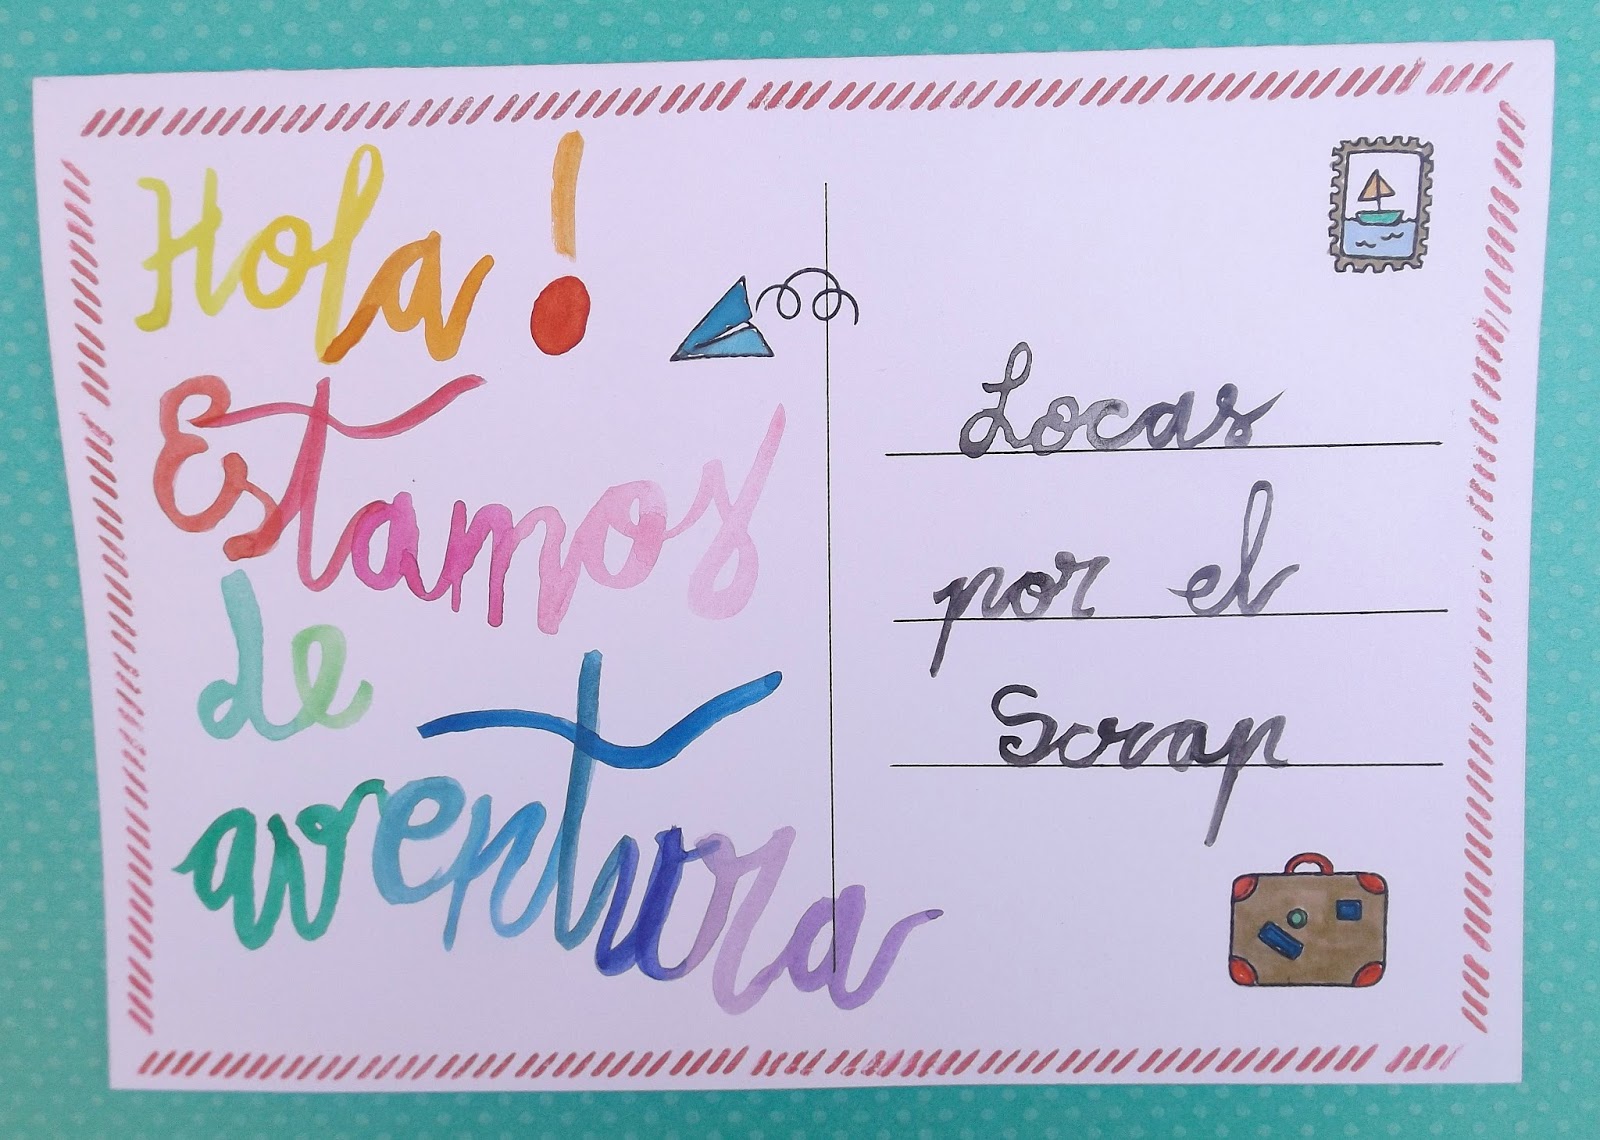 Hola!
Estamos
de
aventura
Locas
por el
Scrap